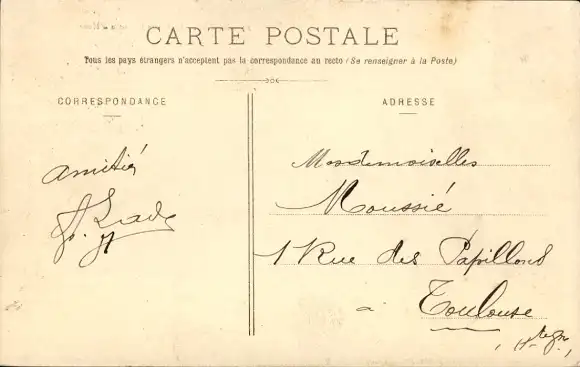 CARTE POSTALE
Tous les pays étrangers n'acceptent pas la correspondance au recto (Se renseigner à la Poste)
CORRESPONDANCE
amitié
ADRESSE
Mesdemoiselles
Moussié
1 Rue des Papillons
à
Toulouse